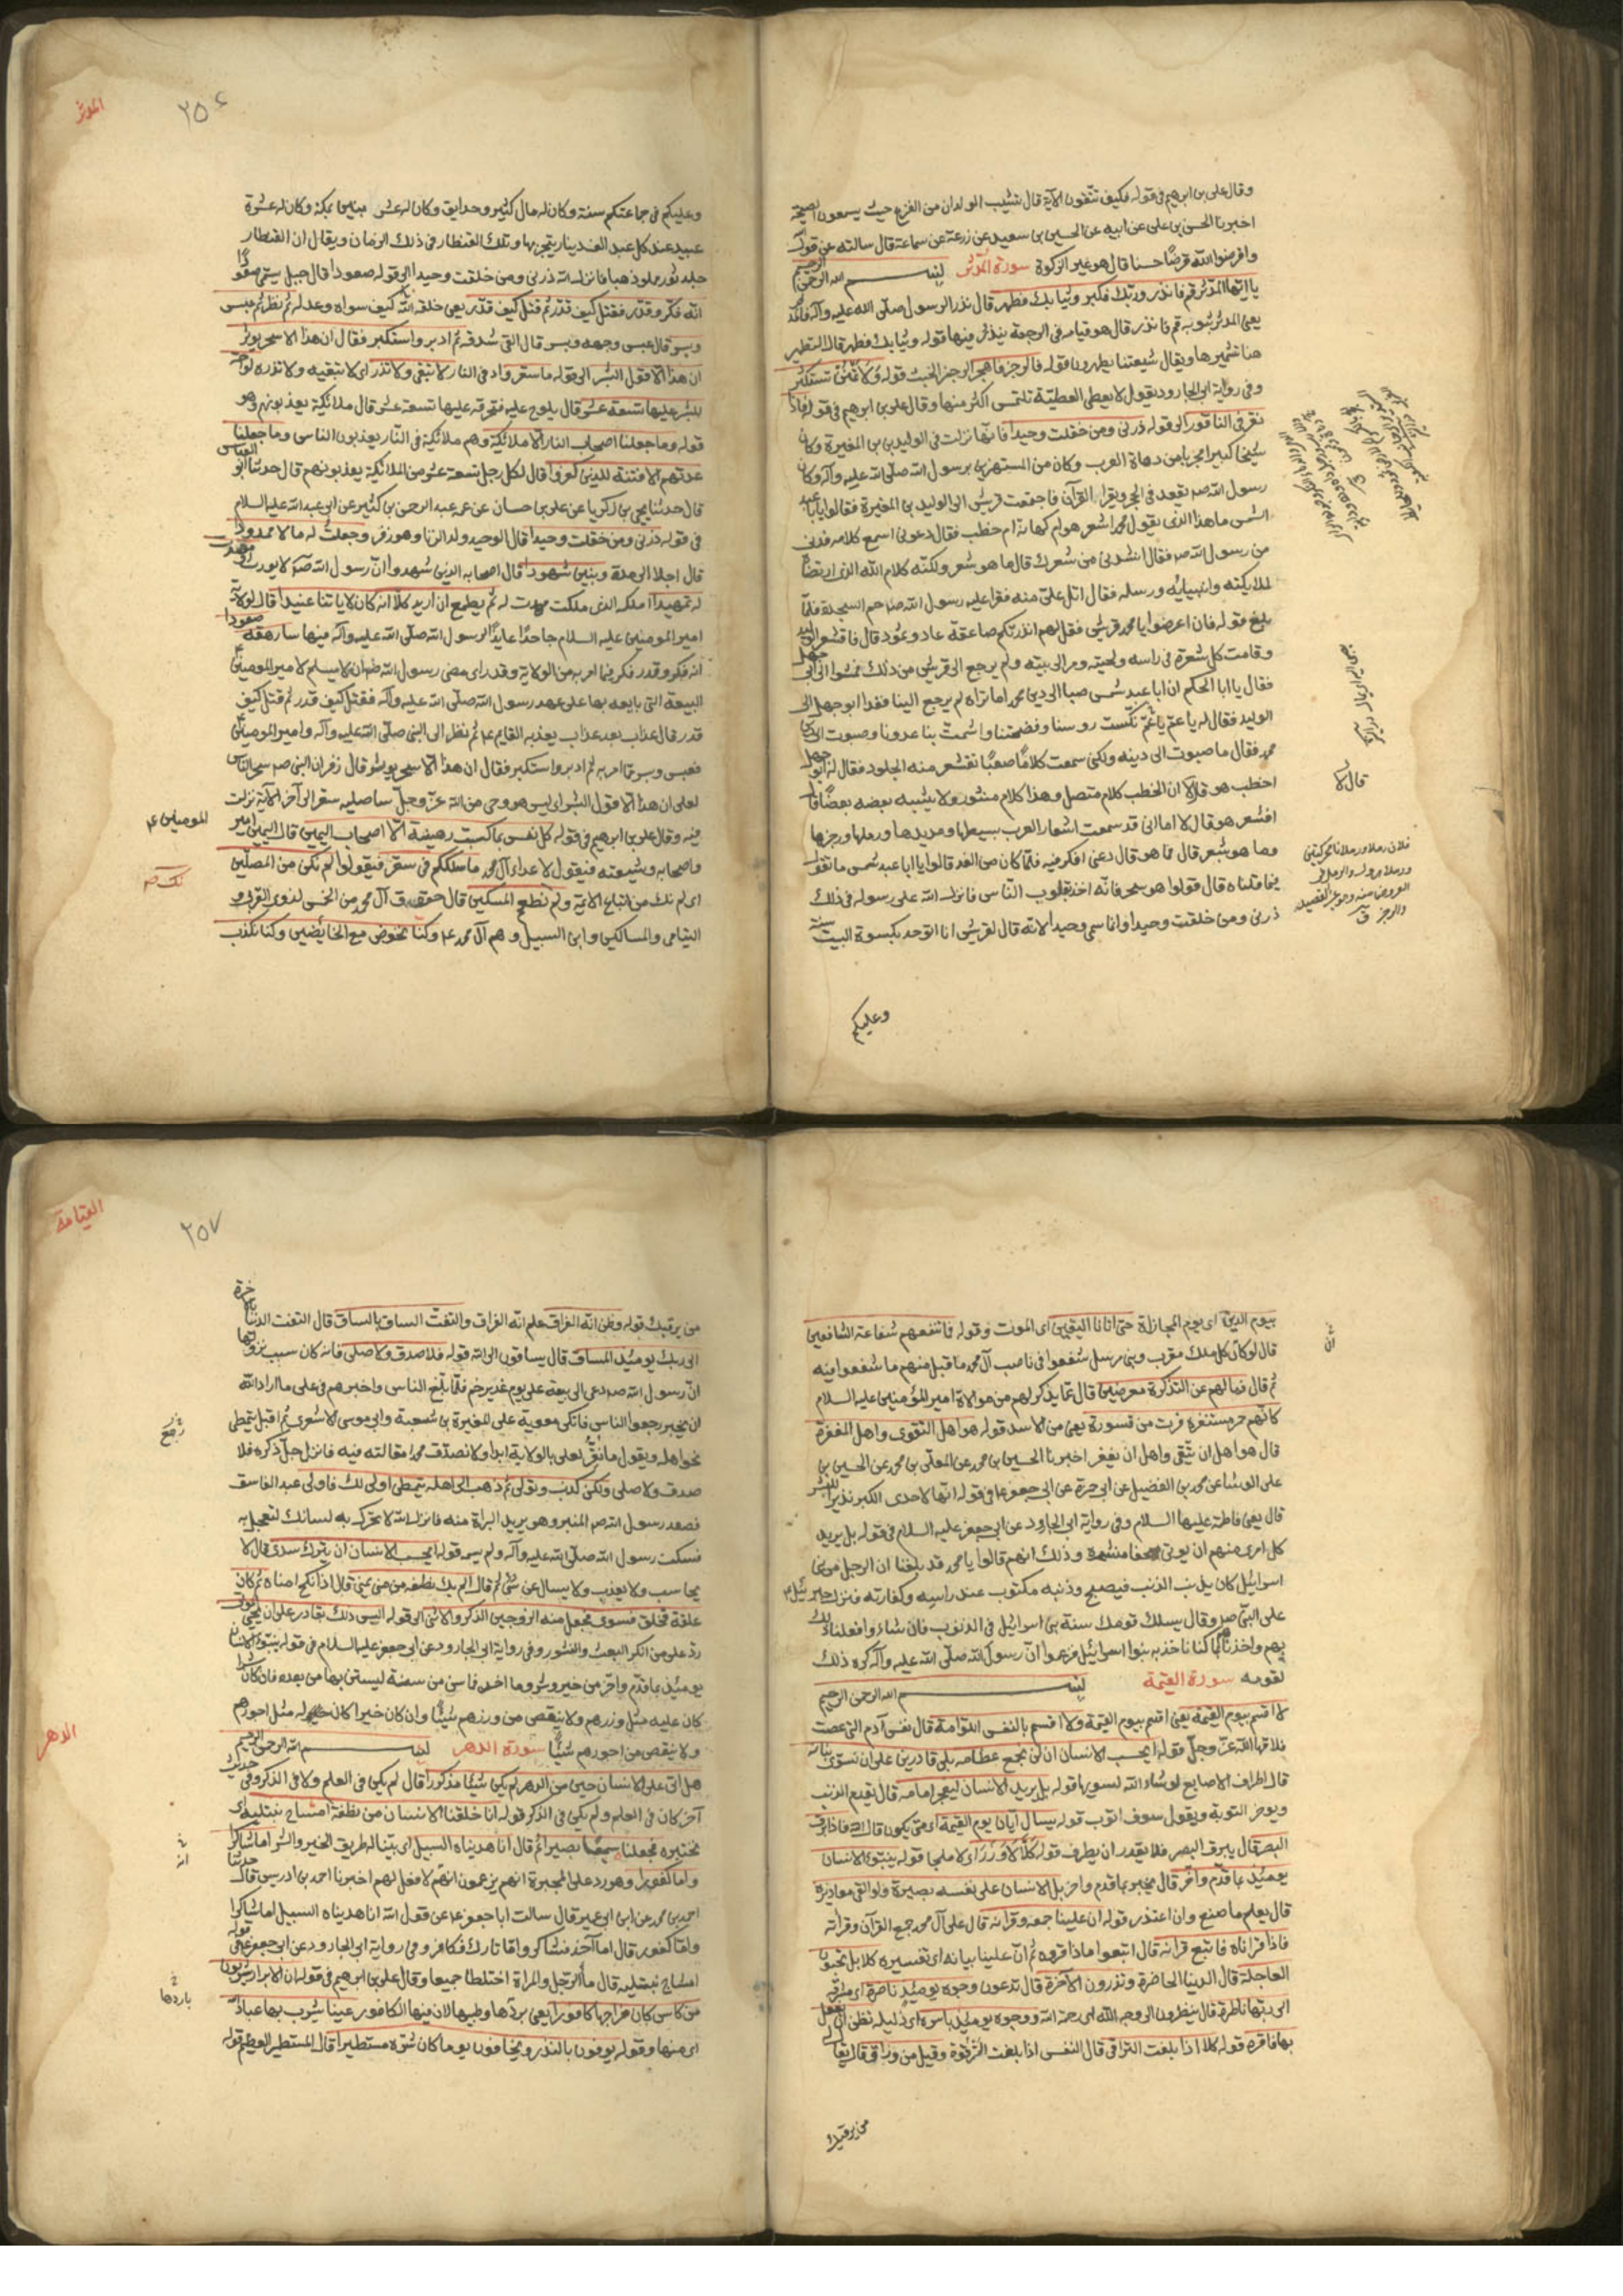 وقال على بن ابرهيم فى قوله فكيف تتقون الآية قال تشيب الولدان من الفزع حيث يسمعون الصيحة
اخبرنا الحسن بن على عن ابيه عن الحسين بن سعيد عن زرعة عن سماعة قال سالته عن قوله
واقرضوا الله قرضًا حسنا قال هو غير الزكوة سورة المدثر بسم الله الرحمن الرحيم
يا ايها المدثر قم فانذر وربك فكبر وثيابك فطهر قال نذر الرسول صلى الله عليه وآله
يعنى المدثر بثوبه قم فانذر قال هو قيامه فى الرجعة ينذر فيها قوله وثيابك فطهر قال التطهير
هنا تشميرها ويقال شيعتنا يطهرون قوله فالرجز فاهجر الرجز الخبث قوله ولا تمنن تستكثر
وفى رواية ابى الجارود يقول لا يعطى العطية تلتمس اكثر منها وقال على بن ابرهيم فى قوله فاذا
نقر فى الناقور الى قوله ذرنى ومن خلقت وحيدا فانها نزلت فى الوليد بن المغيرة وكان
شيخا كبيرا مجربا من دهاة العرب وكان من المستهزين برسول الله صلى الله عليه وآله وكان
رسول الله صم يقعد فى الحجر ويقرا القرآن فاجتمعت قريش الى الوليد بن المغيرة فقالوا يابا عبد
الشمس ما هذا الذى يقول محمد اشعر هو ام كهانة ام خطب فقال دعونى اسمع كلامه فدنى
من رسول الله صم فقال انشدنى من شعرك قال ما هو شعر ولكنه كلام الله الذى ارتضاه
لملايكته وانبيايه ورسله فقال اتل على منه فقرا عليه رسول الله صم حم السجدة فلما
بلغ قوله فان اعرضوا يا محمد قريش فقل لهم انذرتكم صاعقة عاد وثمود قال فاقشعر الوليد
وقامت كل شعرة فى راسه ولحيته ومر الى بيته ولم يرجع الى قريش من ذلك فمشوا الى ابى جهل
فقال يا ابا الحكم ان ابا عبد شمس صبا الى دين محمد اما تراه لم يرجع الينا فغدا ابو جهل الى
الوليد فقال له يا عم يا عم نكست روسنا وفضحتنا واشمت بنا عدونا وصبوت الى دين
محمد فقال ما صبوت الى دينه ولكنى سمعت كلامًا صعبًا تقشعر منه الجلود فقال له ابو جهل
اخطب هو قال لا ان الخطب كلام متصل وهذا كلام منثور ولا يشبه بعضه بعضًا قال
افشعر هو قال لا اما انى قد سمعت اشعار العرب بسيطها ومديدها ورملها ورجزها
وما هو بشعر قال فما هو قال دعنى افكر فيه فلما كان من الغد قالوا يا ابا عبد شمس ما تقول
فيما قلناه قال قولوا هو سحر فانه اخذ بقلوب الناس فانزل الله على رسوله فى ذلك
ذرنى ومن خلقت وحيدا وانما سمى وحيدا لانه قال لقريش انا اتوحد بكسوة البيت سنة
وعليكم
قال لا
المدثر
٢٥٦
وعليكم فى جماعتكم سنة وكان له مال كثير وحدايق وكان له عشر بنين بمكة وكان له عشرة
عبيد عند كل عبد الف دينار يتجر بها وتلك القنطار فى ذلك الزمان ويقال ان القنطار
جلد ثور مملوذهبا فانزل الله ذرنى ومن خلقت وحيدا الى قوله صعودا قال جبل يسمى صعودا
انه فكر وقدر فقتل كيف قدر ثم قتل كيف قدر يعنى خلقه الله كيف سواه وعدله ثم نظر ثم عبس
وبسر قال عبس وجهه وبسر قال القى شدقه ثم ادبر واستكبر فقال ان هذا الا سحر يوثر
ان هذا الا قول البشر الى قوله ما سقر واد فى النار لا تبقى ولا تذر اى لا تبقيه ولا تذره لواحة
للبشر عليها تسعة عشر قال يلوح عليه فتحرقه عليها تسعة عشر قال ملائكة يعذبونهم وهو
قوله وما جعلنا اصحاب النار الا ملائكة وهم ملائكة فى النار يعذبون الناس وما جعلنا
عدتهم الا فتنة للذين كفروا قال لكل رجل تسعة عشر من الملائكة يعذبونهم قال حدثنا ابو العباس
قال حدثنا يحيى بن زكريا عن على بن حسان عن عمه عبد الرحمن بن كثير عن ابى عبد الله عليه السلام
فى قوله ذرنى ومن خلقت وحيدا قال الوحيد ولد الزنا وهو زفر وجعلت له مالا ممدودا
قال اجلا الى مدة وبنين شهودا قال اصحابه الذين شهدوا ان رسول الله صم لا يورث ومهدت
له تمهيدا ملكه الذى ملكت مهدت له ثم يطمع ان ازيد كلا انه كان لاياتنا عنيدا قال لولاية
امير المومنين عليه السلام جاحدًا عايدًا لرسول الله صلى الله عليه وآله فيها سارهقه صعودا
انه فكر وقدر فكر فيما امر به من الولاية وقدر اى مضى رسول الله صم ان لا يسلم لامير المومنين
البيعة التى بايعه بها على عهد رسول الله صلى الله عليه وآله فقتل كيف قدر ثم قتل كيف
قدر قال عذاب بعد عذاب يعذبه القايم ع ثم نظر الى النبى صلى الله عليه وآله وامير المومنين
فعبس وبسر مما امر به ثم ادبر واستكبر فقال ان هذا الا سحر يوثر قال زفر ان النبى صم سحر الناس
لعلى ان هذا الا قول البشر اى ليس هو وحى من الله عز وجل ساصليه سقر الى آخر الآية نزلت
فيه وقال على بن ابرهيم فى قوله كل نفس بما كسبت رهينة الا اصحاب اليمين قال اليمين امير
المومنين ع
واصحابه وشيعته فيقول لاعداء آل محمد ما سلككم فى سقر فيقولوا لم نكن من المصلين
نك صم
اى لم نك من اتباع الايمة ولم نطعم المسكين قال حقوق آل محمد من الخمس لذوى القربى و
اليتامى والمساكين وابن السبيل وهم آل محمد ع وكنا نخوض مع الخايضين وكنا نكذب
بيوم الدين اى بيوم المجازاة حتى اتانا اليقين اى الموت وقوله فما تنفعهم شفاعة الشافعين
قال لو كان كل ملك مقرب ونبى مرسل شفعوا فى ناصب آل محمد ما قبل منهم ما شفعوا فيه
ثم قال فما لهم عن التذكرة معرضين قال عما يذكر لهم من موالاة امير المؤمنين عليه السلام
كانهم حمر مستنفرة فرت من قسورة يعنى من الاسد قوله هو اهل التقوى واهل المغفرة
قال هو اهل ان يتقى واهل ان يغفر اخبرنا الحسين بن محمد عن المعلى بن محمد عن الحسين بن
على الوشا عن محمد بن الفضيل عن ابى حمزة عن ابى جعفر ع فى قوله انها لاحدى الكبر نذيرا للبشر
قال يعنى فاطمة عليها السلام وفى رواية ابى الجارود عن ابى جعفر عليه السلام فى قوله بل يريد
كل امرئ منهم ان يوتى صحفا منشرة وذلك انهم قالوا يا محمد قد بلغنا ان الرجل من بنى
اسرائيل كان يذنب الذنب فيصبح وذنبه مكتوب عند راسه وكفارته فنزل جبرئيل ع
على النبى صم وقال يسلك قومك سنة بنى اسرائيل فى الذنوب فان شاءوا فعلنا ذلك
بهم واخذناهم بما كنا ناخذ به بنوا اسرائيل فزعموا ان رسول الله صلى الله عليه وآله كره ذلك
لقومه سورة القيمة بسم الله الرحمن الرحيم
لا اقسم بيوم القيمة يعنى اقسم بيوم القيمة ولا اقسم بالنفس اللوامة قال نفس آدم التى عصت
فلامها الله عز وجل قوله ايحسب الانسان ان لن نجمع عظامه بلى قادرين على ان نسوى بنانه
قال اطراف الاصابع لو شاء الله لسويها قوله بل يريد الانسان ليفجر امامه قال يقدم الذنب
ويوخر التوبة ويقول سوف اتوب قوله يسال ايان يوم القيمة اى متى يكون قال الله فاذا برق
البصر قال يبرق البصر فلا يقدر ان يطرف قوله كلا لا وزر اى لا ملجا قوله ينبؤ الانسان
يومئذ بما قدم واخر قال يخبر بما قدم واخر بل الانسان على نفسه بصيرة ولو القى معاذيره
قال يعلم ما صنع وان اعتذر قوله ان علينا جمعه وقرانه قال على آل محمد جمع القرآن وقرآته
فاذا قراناه فاتبع قرانه قال اتبعوا ماذا قروه ثم ان علينا بيانه اى تفسيره كلا بل تحبون
العاجلة قال الدنيا الحاضرة وتذرون الآخرة قال تدعون وجوه يومئذ ناضرة اى مشرقة
الى ربها ناظرة قال ينظرون الى وجه الله اى رحمة الله ووجوه يومئذ باسرة اى ذليلة تظن ان يفعل
بها فاقرة قوله كلا اذا بلغت التراقى قال النفس اذا بلغت الترقوة وقيل من وراق قال يقال له
من يرقيك
القيامة
٢٥٧
من يرقيك قوله وظن انه الفراق علم انه الفراق والتفت الساق بالساق قال التفت الدنيا بالآخرة
الى ربك يومئذ المساق قال يساقون الى الله قوله فلا صدق ولا صلى فانه كان سبب نزولها
ان رسول الله صم دعى الى بيعة على يوم غدير خم فلما بلغ الناس واخبرهم فى على ما اراد الله
ان يخبر رجعوا الناس فاتكى معوية على المغيرة بن شعبة وابى موسى الاشعرى ثم اقبل يتمطى
نحو اهله ويقول ما نقر لعلى بالولاية ابدا ولا نصدق محمد مقالته فيه فانزل جل ذكره فلا
صدق ولا صلى ولكن كذب وتولى ثم ذهب الى اهله يتمطى اولى لك فاولى عبد الفاسق
فصعد رسول الله صم المنبر وهو يريد البراة منه فانزل الله لا تحرك به لسانك لتعجل به
فسكت رسول الله صلى الله عليه وآله ولم يسمه قوله ايحسب الانسان ان يترك سدى قال لا
يحاسب ولا يعذب ولا يسال عن شئ ثم قال الم يك نطفة من منى يمنى قال اذا نكح امناه ثم كان
علقة فخلق فسوى فجعل منه الزوجين الذكر والانثى الى قوله اليس ذلك بقادر على ان يحيى الموتى
رد على من انكر البعث والنشور وفى رواية ابى الجارود عن ابى جعفر عليه السلام فى قوله ينبؤ الانسان
يومئذ بما قدم واخر من خير وشر وما اخر فما سن من سنة ليستن بها من بعده فان كان شرا
كان عليه مثل وزرهم ولا ينقص من وزرهم شيئا وان كان خيرا كان له مثل اجورهم
ولا ينقص من اجورهم شيئا سورة الدهر بسم الله الرحمن الرحيم
الدهر
هل اتى على الانسان حين من الدهر لم يكن شيئا مذكورا قال لم يكن فى العلم ولا فى الذكر وفى حديث
آخر كان فى العلم ولم يكن فى الذكر قوله انا خلقنا الانسان من نطفة امشاج نبتليه اى
نختبره فجعلناه سميعا بصيرا ثم قال انا هديناه السبيل اى بينا له طريق الخير والشر اما شاكرا
واما كفورا وهو رد على المجبرة انهم يزعمون انهم لا فعل لهم اخبرنا احمد بن ادريس قال حدثنا
احمد بن محمد عن ابن ابى عمير قال سالت ابا جعفر ع عن قول الله انا هديناه السبيل اما شاكرا
واما كفورا قال اما آخذ فشاكر واما تارك فكافر وفى رواية ابى الجارود عن ابى جعفر ع فى قوله
امشاج نبتليه قال ماء الرجل والمراة اختلطا جميعا وقال على بن ابرهيم فى قوله ان الابرار يشربون
باردها
من كاس كان مزاجها كافورا يعنى بردها وطيبها لان فيها الكافور عينا يشرب بها عباد الله
اى منها وقوله يوفون بالنذر ويخافون يوما كان شره مستطيرا قال المستطير العظيم قوله